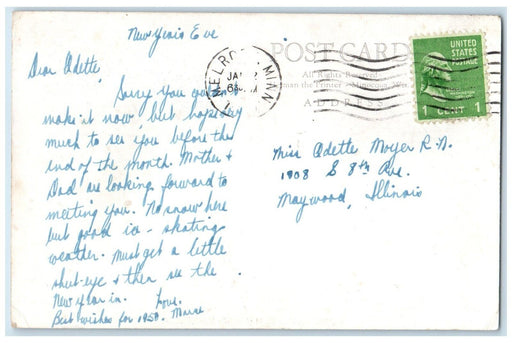 New Years Eve
POST CARD
All Rights Reserved
ADDRESS
MELROSE, MINN
JAN 2
UNITED STATES POSTAGE
1 CENT 1
Dear Odette
Sorry you weren't
make it now but hope
much to see you before the
end of the month. Mother +
Dad are looking forward to
meeting you. No snow here
but good ice - skating
weather. Must get a little
shut-eye + then see the
New Year in. Love.
Best wishes for 1950.
Miss Odette Moyer R.N.
1908 S 8th Ave.
Maywood, Illinois